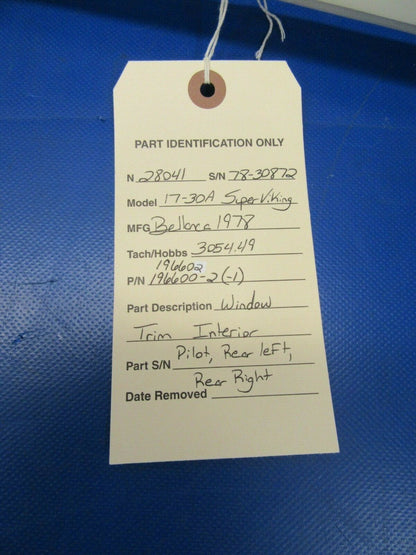 PART IDENTIFICATION ONLY
N 28041 S/N 78-30872
Model 17-30A Super V.King
MFG Bellanca 1978
Tach/Hobbs 3054.49
196602
P/N 196600-2 (-1)
Part Description Window
Trim Interior
Part S/N Pilot, Rear left,
Rear Right
Date Removed